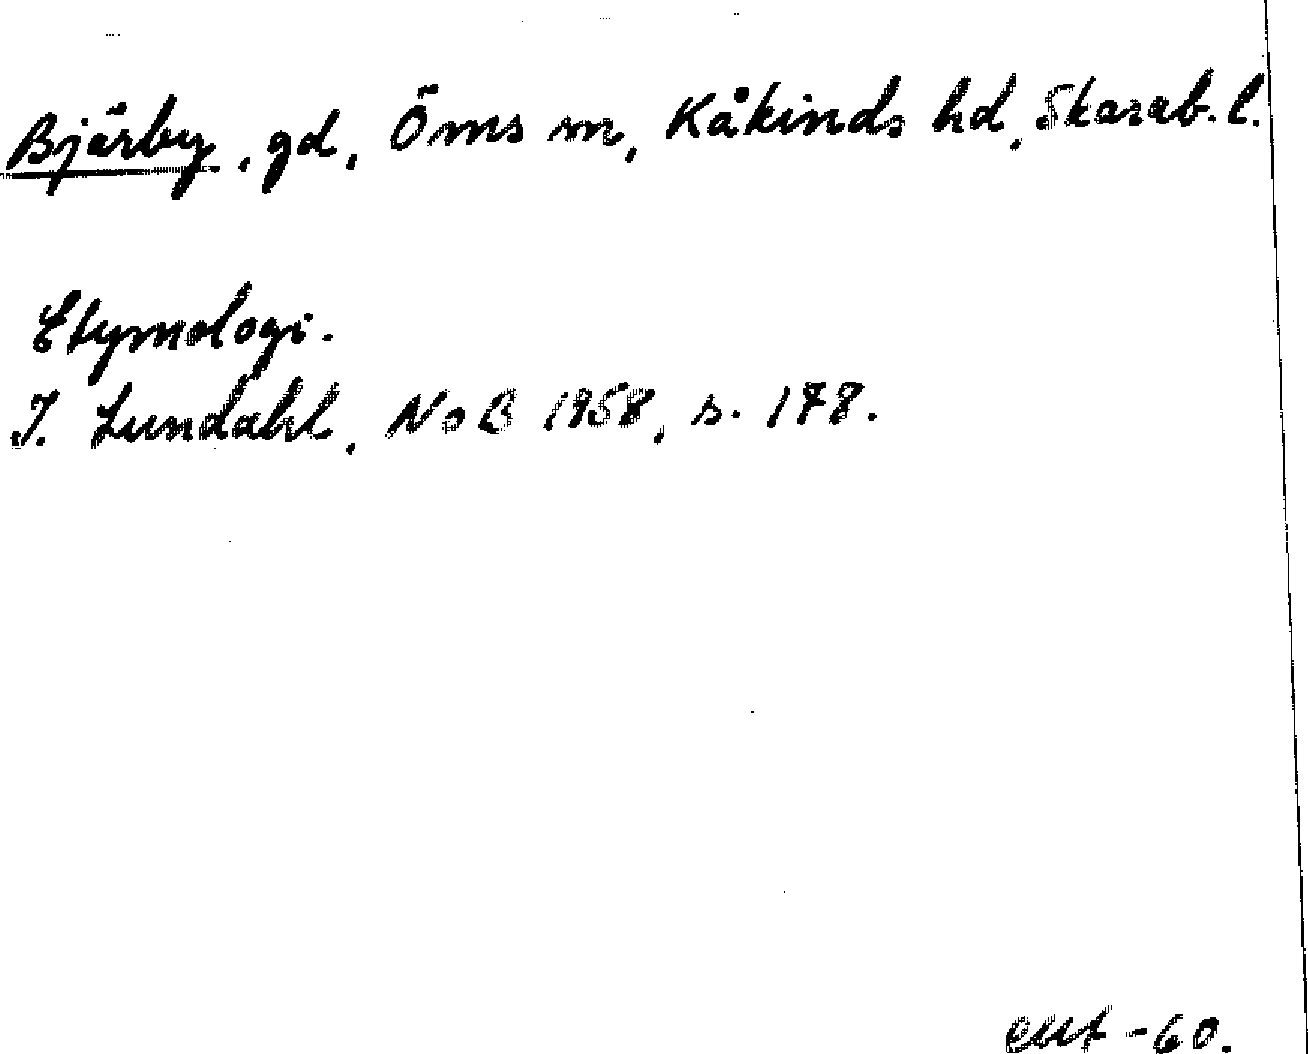 Bjärby, gd, Öms sn, Kåkinds hd, Skarab. l.
Etymologi.
I. Lundahl, NoB 1958, s. 178.
-60.